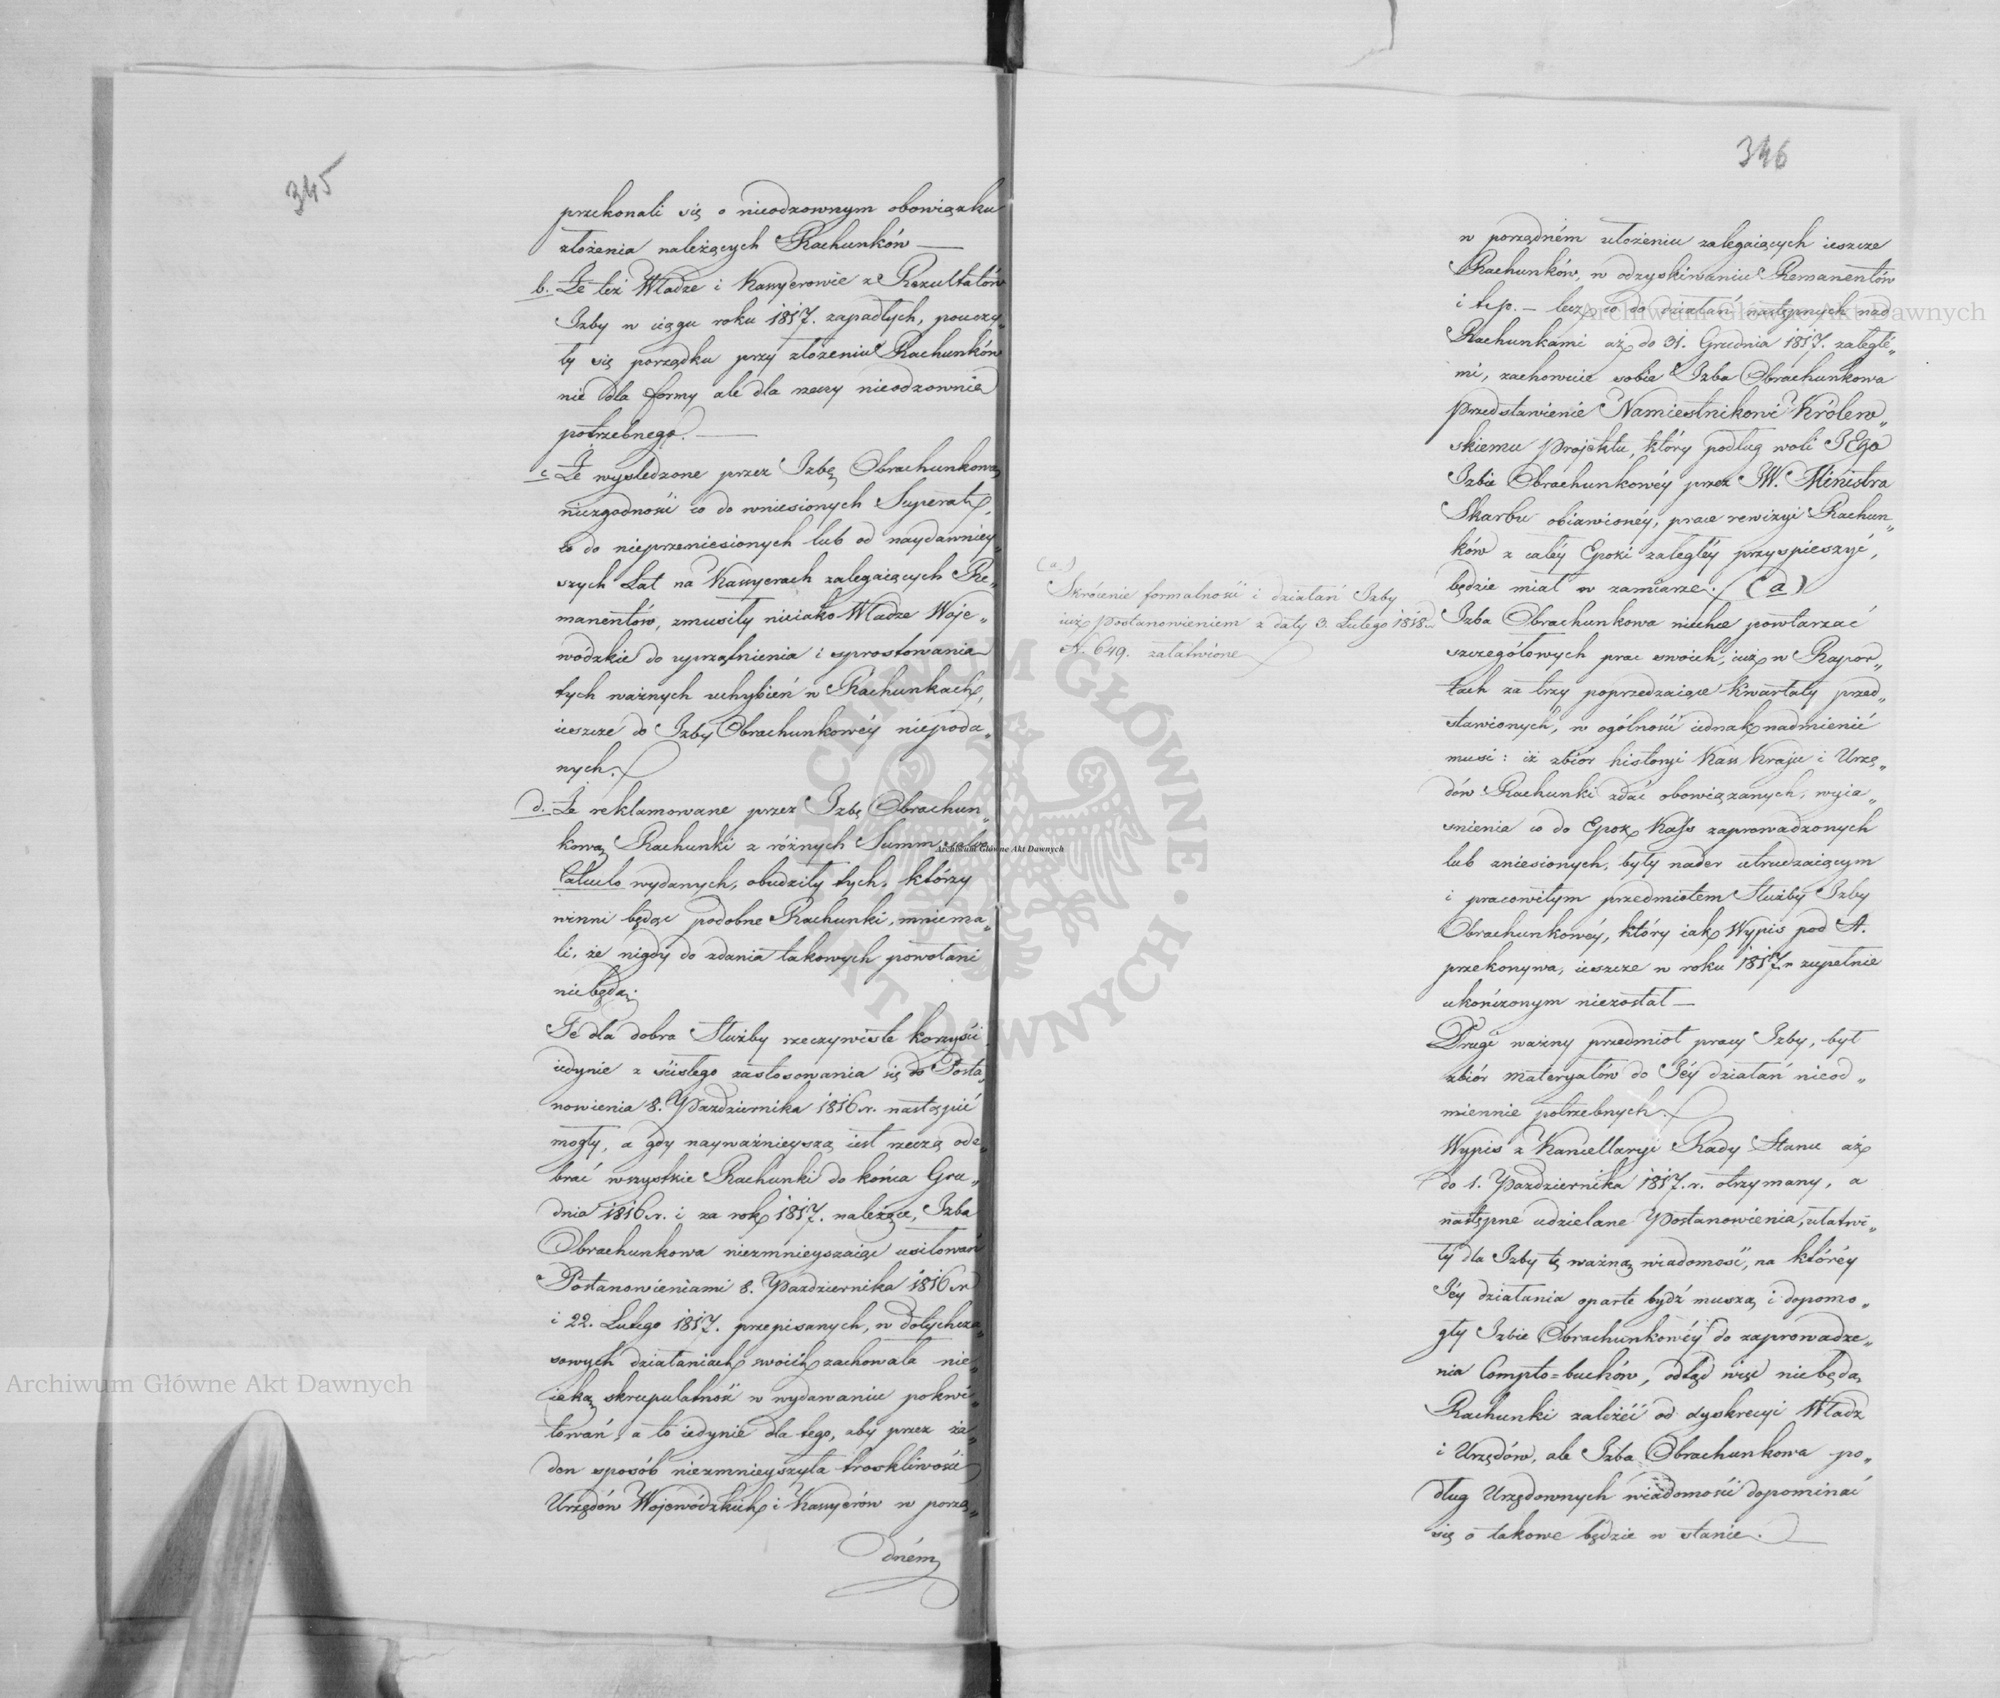 345
przekonali się o nieodzownym obowiązku
złożenia należących Rachunków —
b. Że też Władze i Kassyerowie z Rezultatów
Izby w ciągu roku 1817. zapadłych, pouczy„
ły się porządku przy złożeniu Rachunków
nie dla formy ale dla rzeczy nieodzownie
potrzebnego. —
c. Że wyśledzone przez Izbę Obrachunkową
niezgodności co do wniesionych Superat,
co do nieprzeniesionych lub od naydawniey„
szych Lat na Kassyerach zalegaiących Re„
manentów, zmusiły nieiako Władze Woje„
wódzkie do uprzątnienia i sprostowania
tych ważnych uchybień w Rachunkach,
ieszcze do Izby Obrachunkowéy niepoda„
nych.
d. Że reklamowane przez Izbę Obrachun„
kową Rachunki z różnych Summ salvo
Calculo wydanych, obudziły tych, którzy
winni będąc podobne Rachunki, mniema„
li, że nigdy do zdania takowych powołani
niebędą.
Te dla dobra Służby rzeczywiste korzyści
iedynie z ścisłego zastosowania się do Posta„
nowienia 8. Października 1816 r. nastąpić
mogły, a gdy nayważnieyszą iest rzeczą ode„
brać wszystkie Rachunki do końca Gru„
dnia 1816 r. i za rok 1817. należące, Izba
Obrachunkowa niezmnieyszaiąc usiłowań
Postanowieniami 8. Października 1816 r
i 22. Lutego 1817. przepisanych, w dotychcza„
sowych działaniach swoich zachowała nie„
iaką skrupulatność w wydawaniu pokwi„
towań, a to iedynie dla tego, aby przez ża„
den sposób niezmnieyszyła troskliwości
Urzędów Wojewódzkich i Kassyerów w porzą„
dném
346
w porządném ułożeniu zalegaiących ieszcze
Rachunków, w odzyskiwaniu Remanentów
i t.p. — lecz co do działań następnych nad
Rachunkami aż do 31. Grudnia 1817. zaległé„
mi, zachowuie sobie Izba Obrachunkowa
przedstawienie Namiestnikowi Królew„
skiemu Projektu, który podług woli JEgo
Izbie Obrachunkowéy przez JW. Ministra
Skarbu obiawionéy, prace rewizyi Rachun„
ków z całéy Epoki zaległéy przyspieszyć,
będzie miał w zamiarze. (a)
(a)
Skrócenie formalności i działań Izby
iuż Postanowieniem z daty 3. Lutego 1818 r.
N. 649. załatwione
Izba Obrachunkowa niechce powtarzać
szczegółowych prac swoich, iuż w Rapor„
tach za trzy poprzedzaiące Kwartały przed„
stawionych, w ogólności iednak nadmienić
musi: iż zbior historyi Kass Kraju i Urzę„
dów Rachunki zdać obowiązanych, wyia„
snienia co do Epok Kass zaprowadzonych
lub zniesionych, były nader utrudzaiącym
i pracowitym przedmiotem Służby Izby
Obrachunkowéy, który iak Wypis pod A.
przekonywa, ieszcze w roku 1817 r. zupełnie
ukończonym niezostał —
Drugi ważny przedmiot pracy Izby, był
zbiór materyałów do Jéy działań nieod„
miennie potrzebnych.
Wypis z Kancellaryi Rady Stanu aż
do 1. Października 1817. r. otrzymany, a
następne udzielane Postanowienia, ułatwi„
ły dla Izby tę ważną wiadomość, na któréy
Jéy działania oparte bydź muszą i dopomo„
gły Izbie Obrachunkowéy do zaprowadze„
nia Compto=buchów, odtąd więc niebędą
Rachunki zależéć od dyskrecyi Władz
i Urzędów, ale Izba Obrachunkowa po„
dług Urzędownych wiadomości dopominać
się o takowe będzie w stanie.
Archiwum Główne Akt Dawnych
Archiwum Główne Akt Dawnych
Archiwum Główne Akt Dawnych
ARCHIWUM GŁÓWNE · AKT DAWNYCH ·